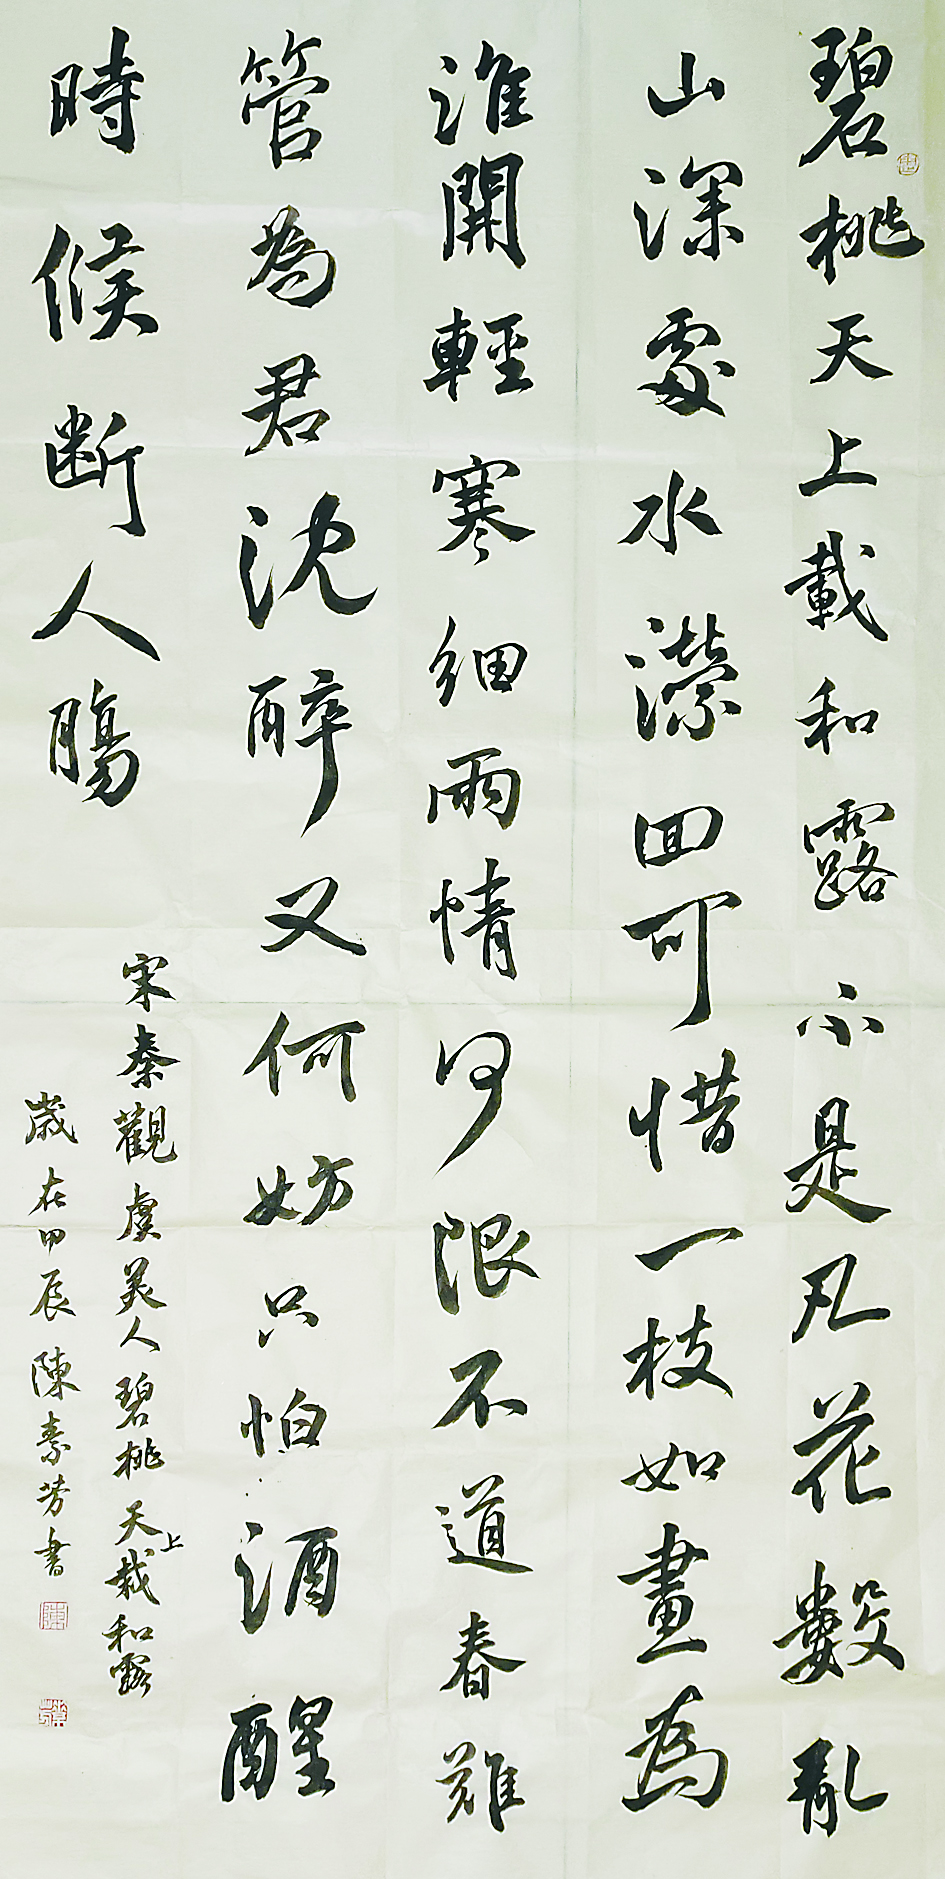 碧桃天上載和露不是凡花數亂
山深處水瀠回可惜一枝如畫為
誰開輕寒細雨情何限不道春難
管為君沈醉又何妨只怕酒醒
時候斷人腸
宋秦觀虞美人碧桃天上栽和露
歲在甲辰陳素芳書